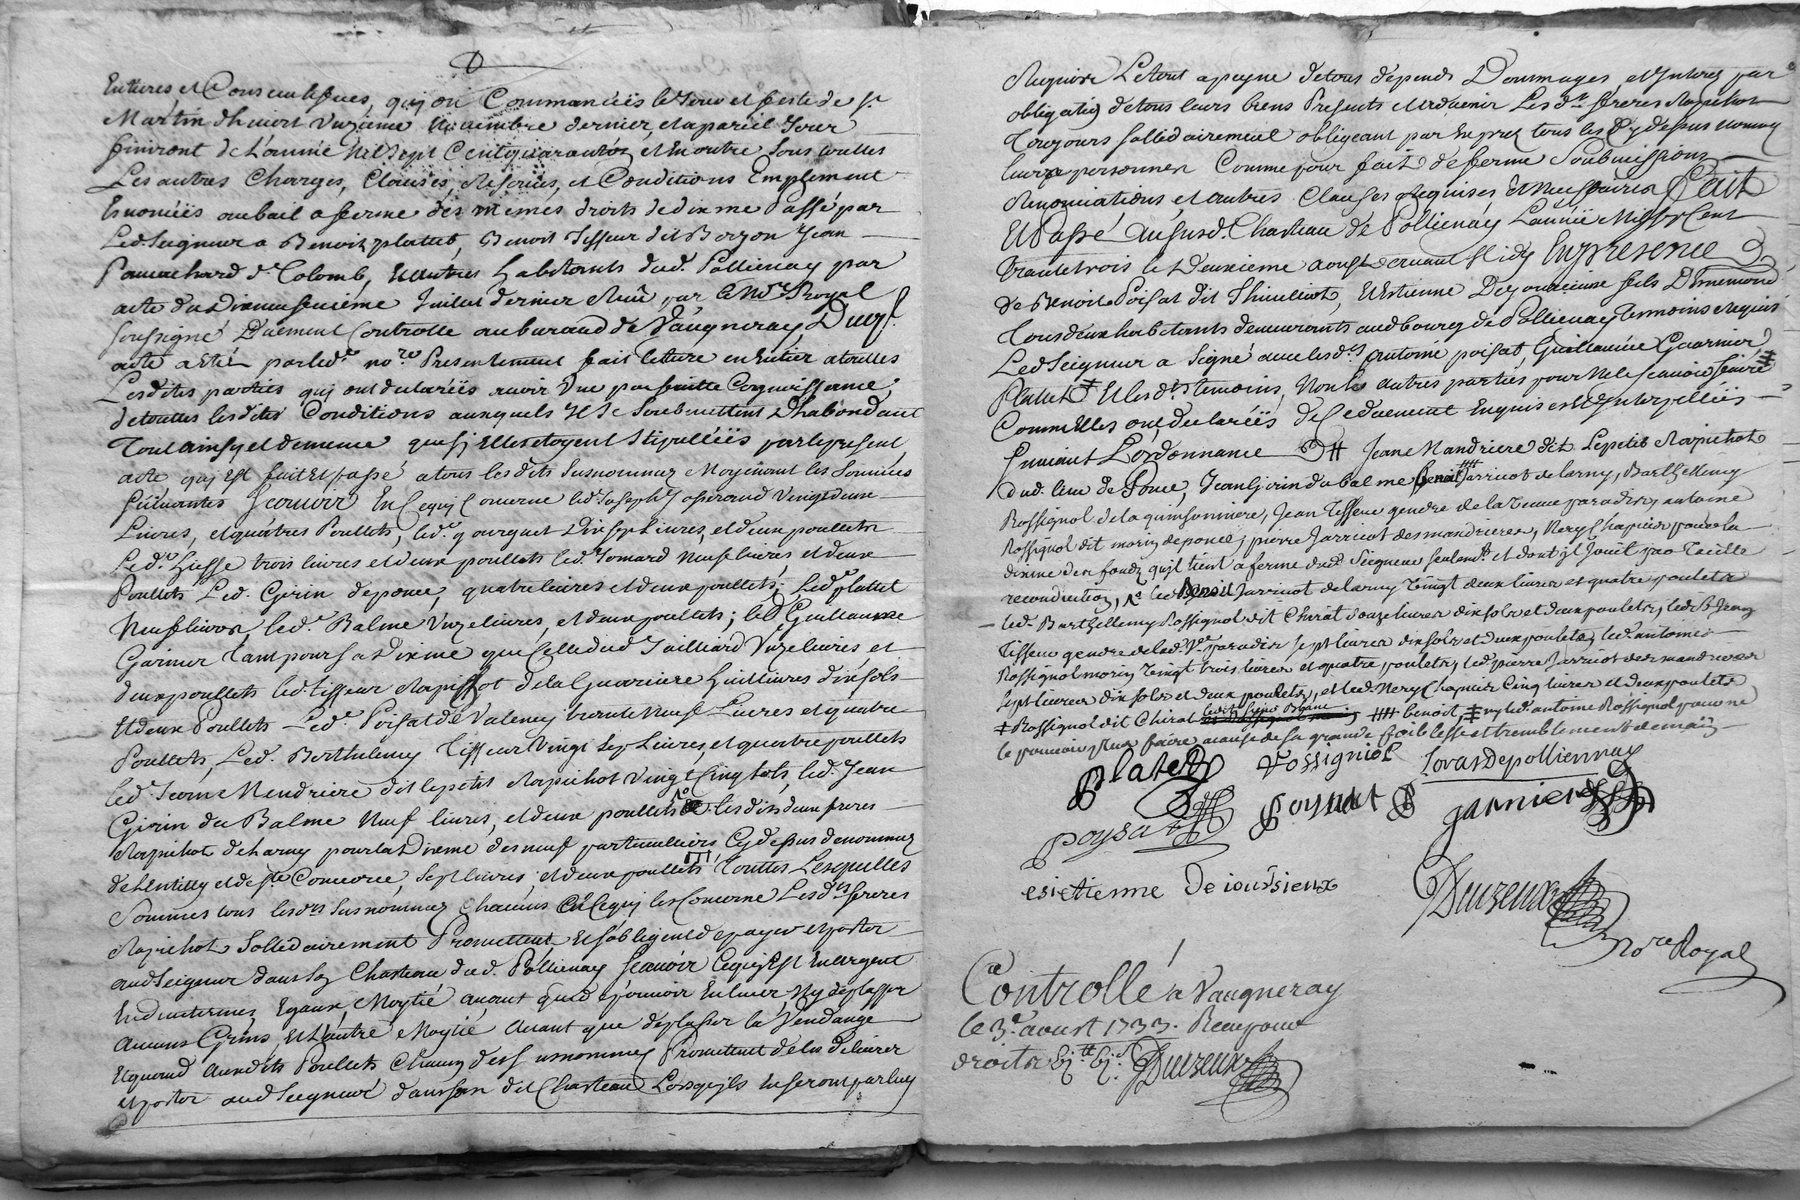 Entieres et Consecutives, quj ont Commancéës le Jour et feste de St
Martin dhiuert Vnzieme Novembre dernier, et apareil Jour
finiront de L'année Mil Sept Cent quarante et En outre Sous touttes
Les autres Charges, Clauses, Reserues, et Conditions Emplement
Enoncéës au bail a ferme des mêmes droits de dixme Passé par
Led. Seigneur a Benoit platet, Benoit Tisseur dit Bozon Jean
Colomb, Et autres habitants dud. Pollienay par
acte du Dixneufuieme Juillet dernier Receu par le Nore Royal
Soussigné Duement Controllé au bureau de Vaugneray, Duql.
acte a Eté par led. nore Presentement fait lecture en Entier a touttes
Lesdites parties quj ont declaréës avoir Vne parfaitte Connoissance
de touttes lesdites Conditions auxquels Il Se Soubmettent D'habondant
Tout ainsy et de meme que sj Elles etoyent Stipulléës par le present
acte quj Est fait Et passé a tous les dits Susnommez Moyenant les Sommes
Suiuantes Scauoir En Ce quj Concerne led. Joseph Josserand Vingt deux
Liures, et quatres Poullets, led. gourguet Dix Sept Liures, et deux poullets
Led. Hiesse trois liures et deux poullets led. Jomard Neuf liures et deux
Poullets Led. Girin de ponce, quatre liures et deux poullets; Led. platet
Neuf liures, led. Balme Vnze liures, et deux poullets; led. Guillaume
Garnier Tant pour Sa Dixme que Celle dud. Jailliard Vnze liures et
deux poullets led. tisseur Rapichot de la Guerriere huit liures dix sols
Et deux Poullets Led. Poisat de Valency trente Neuf Liures et quatre
Poullets, Led. Berthelemy Tisseur Vingt Sept Liures, et quatre poullets
led. Jeanne Mendriere dit le petit Rapichot Vingt Cinq sols, led. Jean
Girin du Balme Neuf liures, et deux poullets les dits deux freres
Rapichot de Larny pour la Dixme des neuf particulliers Cy dessus denommez
de Lentilly et de Ste Consorce, Sept liures, et deux poullets Touttes Lesquelles
Sommes tous lesdts Susnommez Chacuns En Ce quj les Concerne Lesdts freres
Rapichot Sollidairement Promettent, Et Sobligent de payer et porter
aud Seigneur dans Son Chasteau dud. Pollienay Scauoir Ce quj Est En argent
En deux termes Egaux, Moytié auant que de pouuoir Enleuer, Ny deplasser
Aucuns Grins, Et L'autre Moytié Auant que deplasser la Vendange
Et quand Auxdits Poullets Chacun des Susnommez Promettent de les deliurer
et porter aud Seigneur dans Son dit Chasteau Lorsqu'ils En Seront par luy
Requis Le tout a peyne de tous depends Dommages et Interez par
obligation de tous leurs biens Presents et Aduenir Lesdts freres Rapichot
Toujours Sollidairement obligeant par Exprez tous les Cy dessus nommez
leurs personnes Comme pour fait de ferme Soubmissions
Renonciations, et autres Clauses Requises Et Necessaires Fait
Et Passé Au Susd. Chasteau de Pollienay L'année Mil Sept Cent
Trente trois le Deuxieme aoust avant Midy En presence
de Benoit Poisat dit Thiulliot, Et Estienne Dejoucieux fils D'Ennemond
Tous deux habitants demeurants aud bourg de Pollienay Temoins Requis
Led Seigneur a Signé auec lesdts Antoine poisat, Guillaume Garnier
Platet Et lesdts temoins, Non les autres parties pour ne le scauoir faire
Comm'Elles ont declaréës de Ce duement Enquis et Interpelléës
Suiuant Lordonnance Jeane Mandriere dit Lepetit Rapichot
dud. lieu de Ponce, Jean Girin du balme Benoit Jarricot de larny, Barthellemy
Rossignol de la guinsonniere, Jean Tisseur gendre de la Veuue paradis, antoine
Rossignol dit morin de ponce; pierre Jarricot des mandrieres, Nery Chapuis pour la
dixme des fondz qu'il tient a ferme dudt Seigneur seulemt et dont jl Jouit par Taisible
reconduction, led Benoit Jarricot de larny Vingt deux liures et quatre poulets
led. Barthellemy Rossignol dit Chirat douze liures dix sols et deux poulets, led. Jean
Tisseur gendre de lad. Ve paradis Sept liures dix sols et deux poulets, led. antoine
Rossignol morin Vingt trois liures et quatre poulets, led pierre Jarricot des mandrieres
Sept liures dix sols et deux poulets, et led. Nery Chapuis Cinq liures et deux poulets
Rossignol dit Chirat benoit, ny led. antoine Rossignol pour ne
le pouuoir plus faire a cause de sa grande foiblesse et tremblement de main
Platet rossigniol Loras de pollienay
poysat poysat garnier
esietienne De iousieux
Duzeux
Nore Royal
Controllé a Vaugneray
le 3e aoust 1733. Receu pour
droits Duzeux